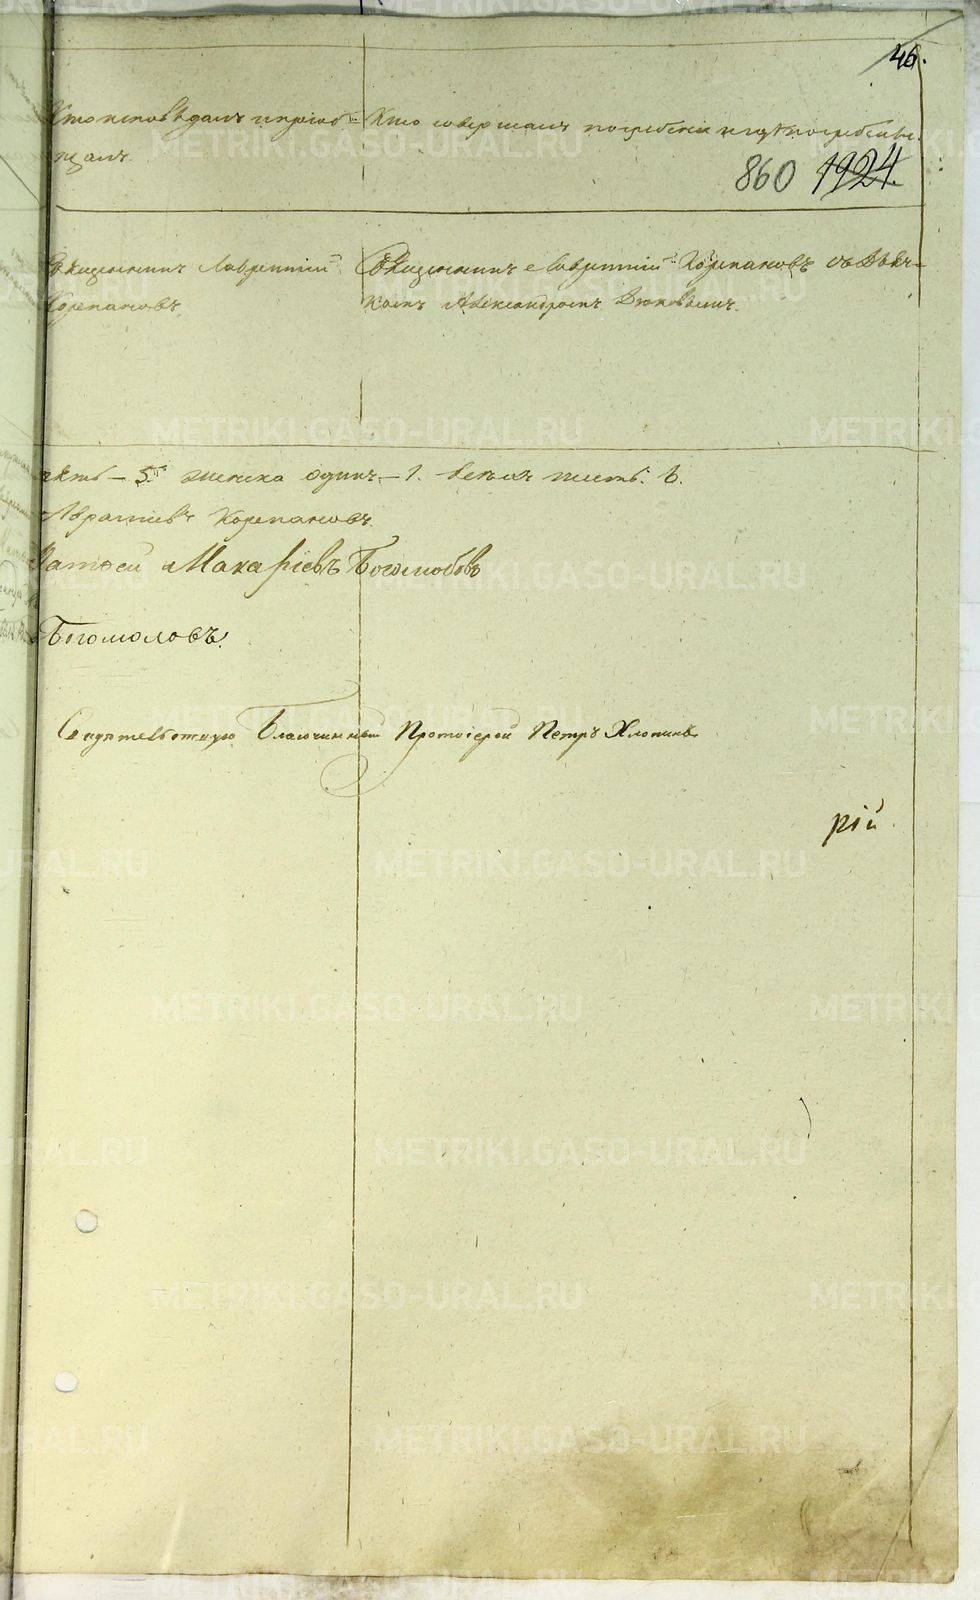 46.
Кто исповѣдалъ и пріоб-
щалъ.
Кто совершалъ погребеніе и гдѣ погребены.
860 1924.
Священникъ Лаврентій
Корепановъ
Священникъ Лаврентій Корепановъ съ Дьяч-
комъ Александромъ
пять – 5. женска одинъ – 1. всѣхъ шесть. 6.
Лаврентій Корепановъ
Матѳей Макаріевъ Богомоловъ
Богомоловъ.
Свидѣтельствую Благочинный Протоіерей Петръ Хлопинъ
рій
METRIKI.GASO-URAL.RU